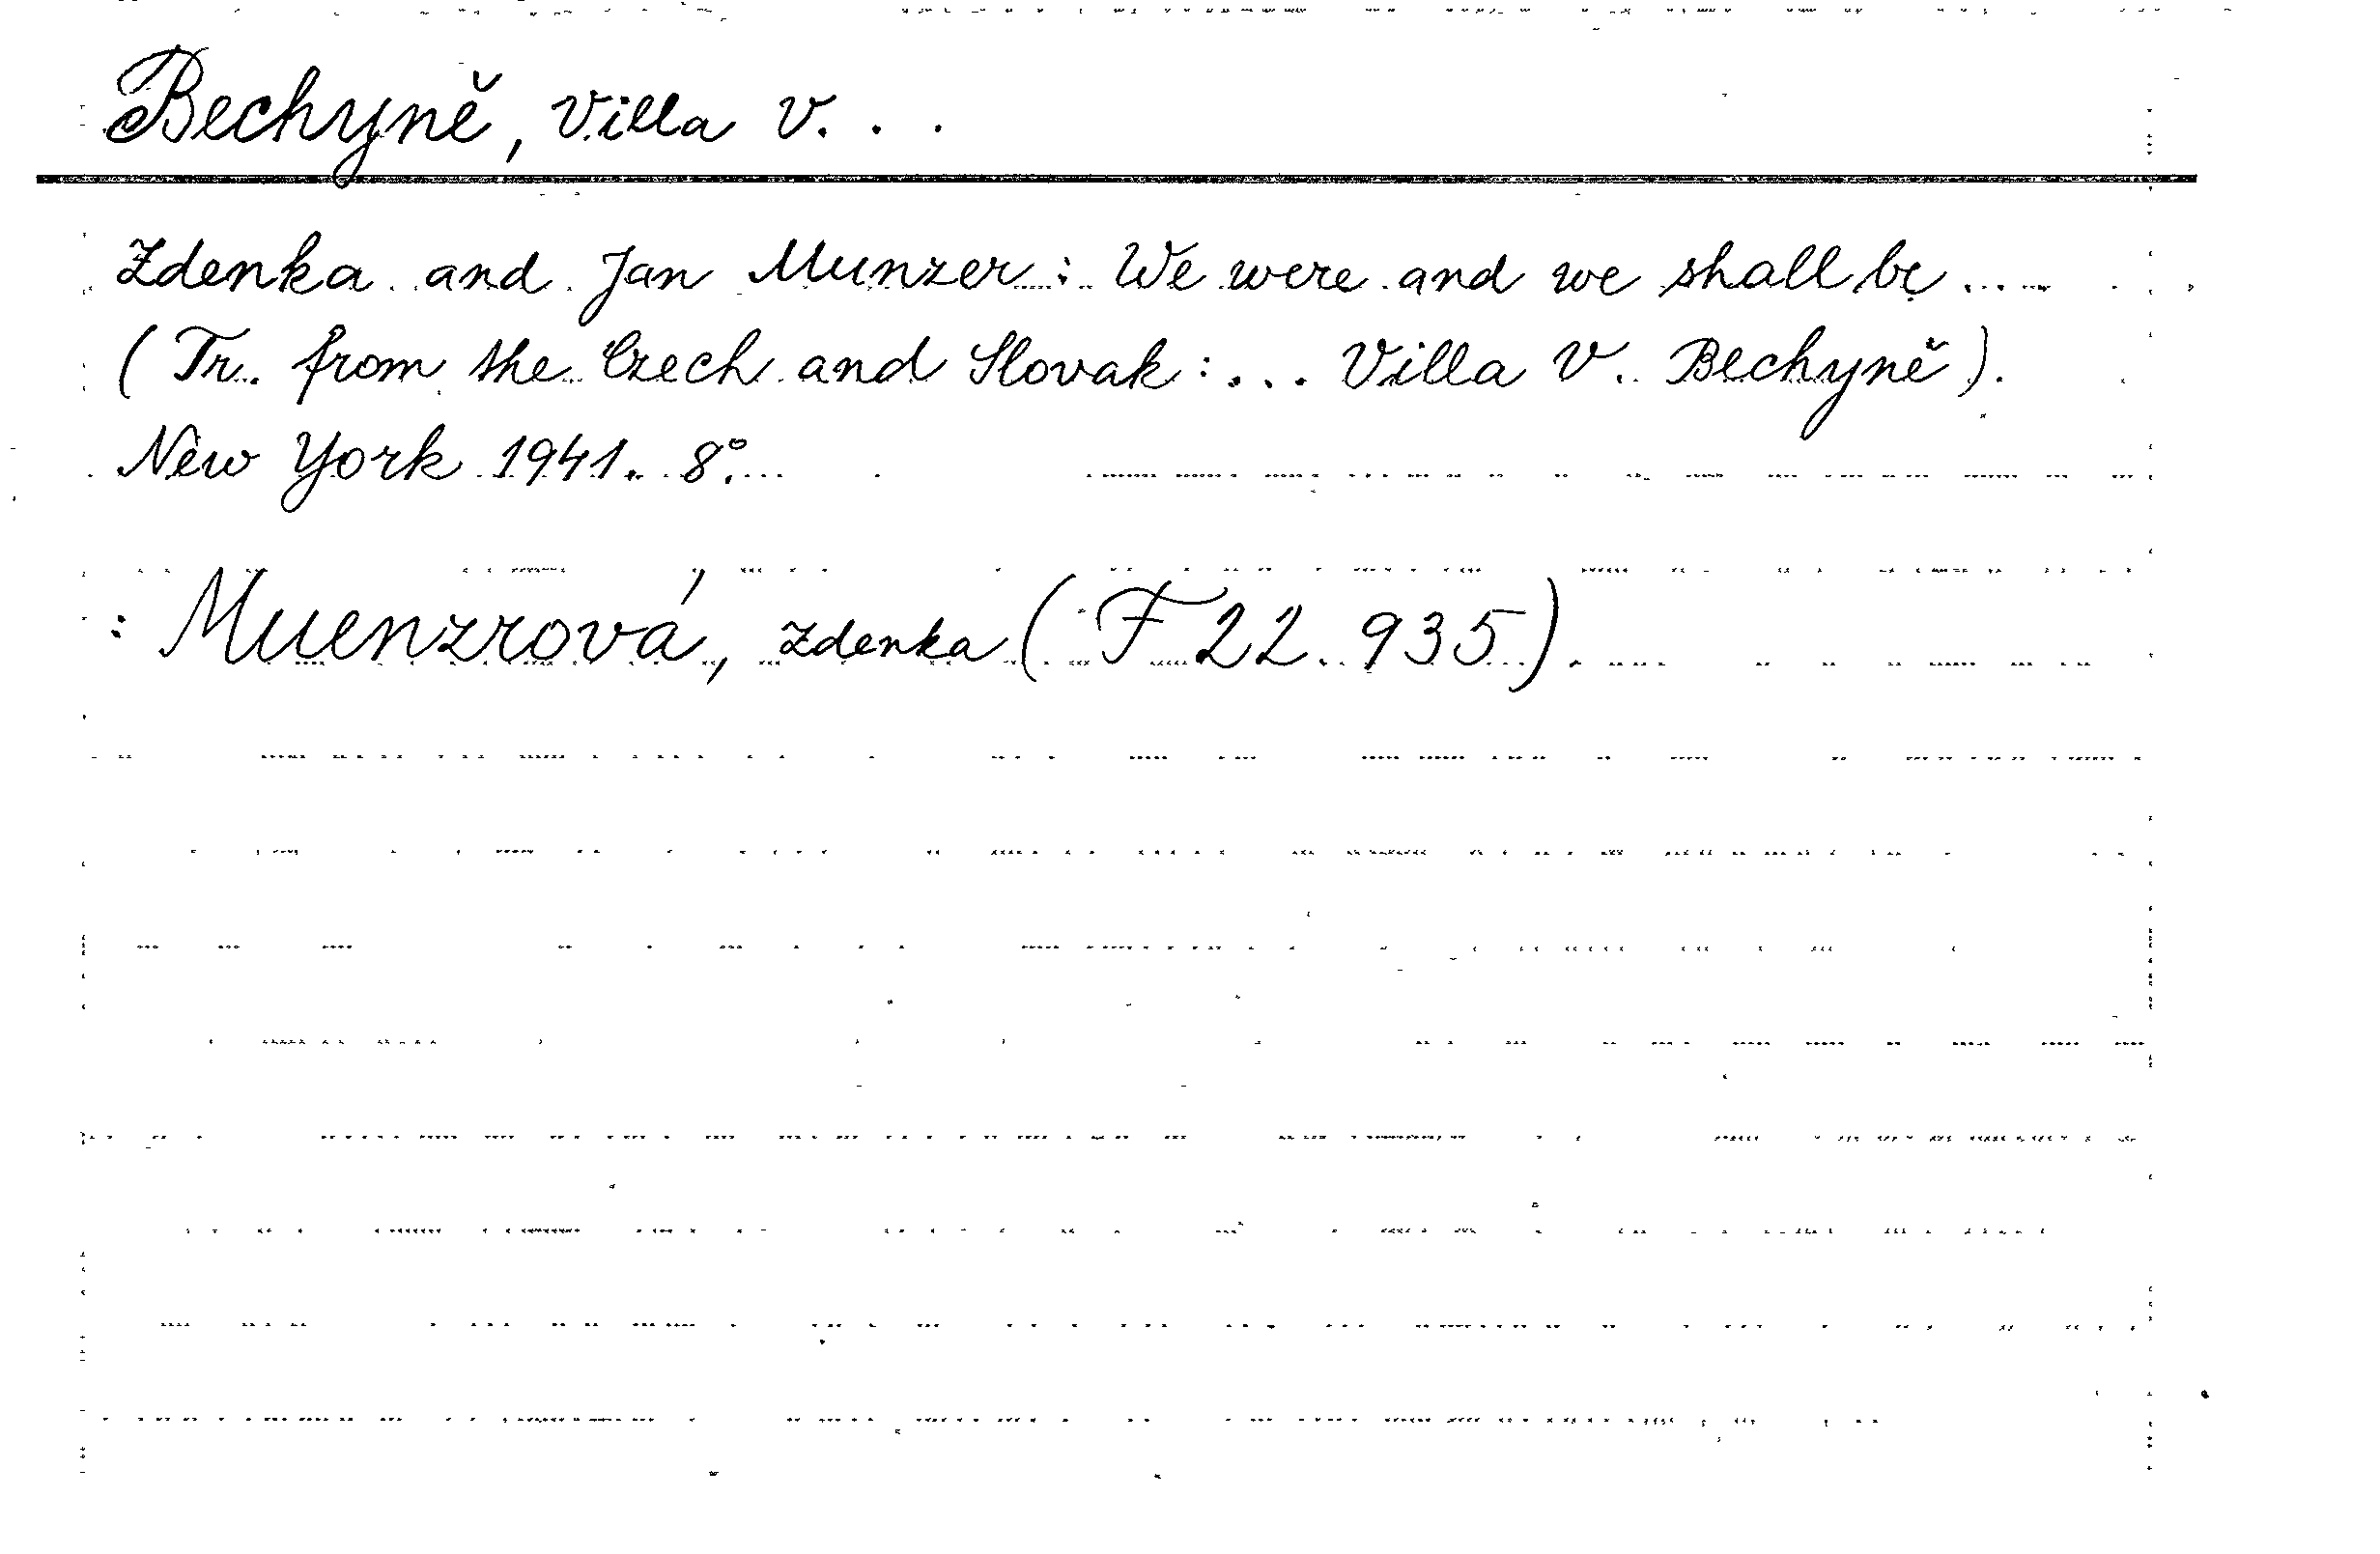 Bechyně, Villa V. . .
Zdenka and Jan Munzer: We were and we shall be ....
(Tr. from the Czech and Slovak: ... Villa V. Bechyně).
New York 1941. 8°.
: Muenzrová, Zdenka (F 22.935).